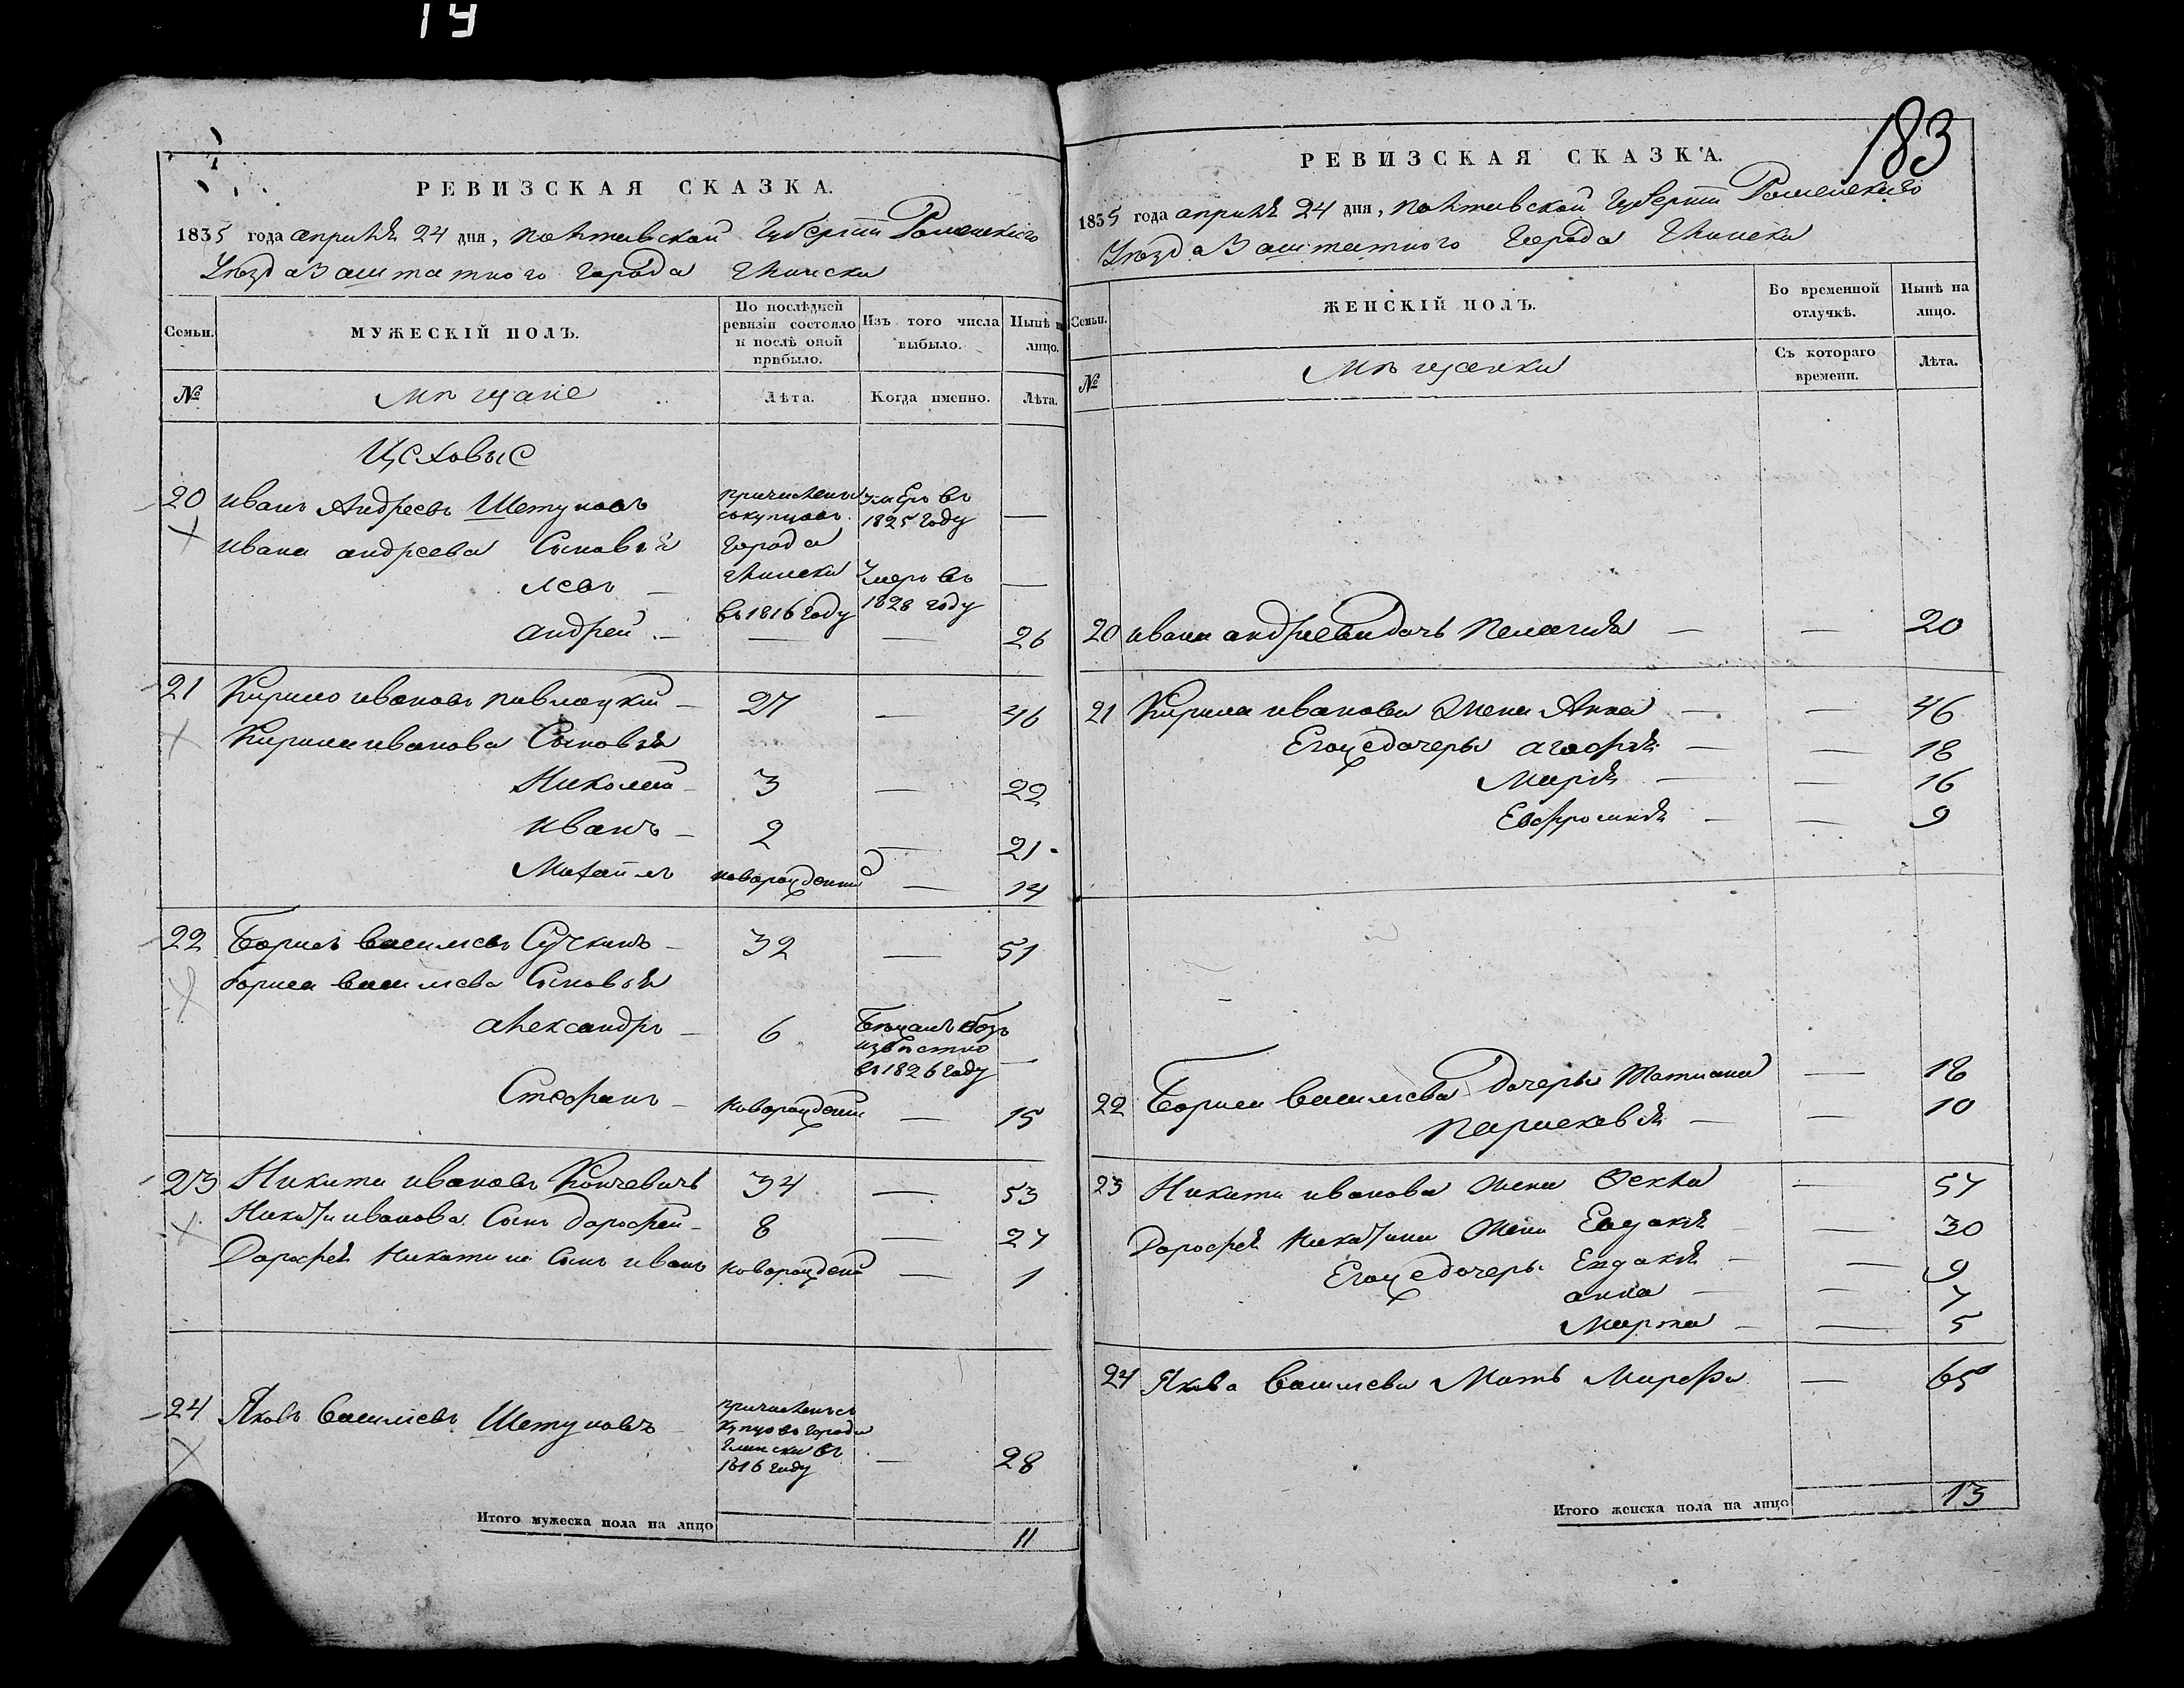 183
РЕВИЗСКАЯ СКАЗКА.
1835 года апрѣля 24 дня, Полтавской Губерніи Роменскаго
Уѣзда Заштатного города Глинска
Семьи.
МУЖЕСКІЙ ПОЛЪ.
По послѣдней ревизіи состояло и послѣ оной прибыло.
Изъ того числа выбыло.
Нынѣ на лицо.
№
Мѣщане
Лѣта.
Когда именно.
Лѣта.
Цеховые
20 Иванъ Андреевъ Шетуновъ причисленъ съ купцовъ умеръ въ 1825 году —
Ивана андреева Сыновья города
левъ — Глинска въ 1816 году умеръ въ 1828 году —
андрей — — — 26
21 Кирило ивановъ павлоцкій — 27 — 46
Кирила иванова Сыновья
Николай — 3 — 22
иванъ — 2 — 21
Михаилъ новорожденный — 14
22 Борисъ василіевъ Сучкинъ — 32 — 51
бориса василіева Сыновья
александръ — 6 Бежалъ безъ извѣстно въ 1826 году —
Стефанъ — новорожденный — 15
23 Никита ивановъ Кончевичъ 34 — 53
Никиты иванова Сынъ дарофей — 8 — 27
Дарофея Никитина Сынъ иванъ новорожденный — 1
24 Яковъ василіевъ Шетуновъ причисленъ съ купцовъ города Глинска въ 1816 году — 28
Итого мужеска пола на лицо 11
РЕВИЗСКАЯ СКАЗКА.
1835 года апрѣля 24 дня, Полтавской Губерніи Роменскаго
Уѣзда Заштатного Города Глинска
Семьи.
ЖЕНСКІЙ ПОЛЪ.
Во временной отлучкѣ.
Нынѣ на лицо.
№
Мѣщанки
Съ котораго времени.
Лѣта.
20 ивана андреева дочь Пелагия — — 20
21 Кирила иванова Жена Анна — — 46
Егожедочеры агафия — — 18
Мария — — 16
Евфросиния — — 9
22 Бориса василіева дочеры Татиана — 18
параскевия — — 10
23 Никиты иванова Жена Фекла — 57
Дарофея Никитина Жена Евдакия — — 30
Егожедочеры Евдакия — — 9
анна — — 7
Марта — — 5
24 Якова василіева Мать Марфа — 65
Итого женска пола на лицо 13